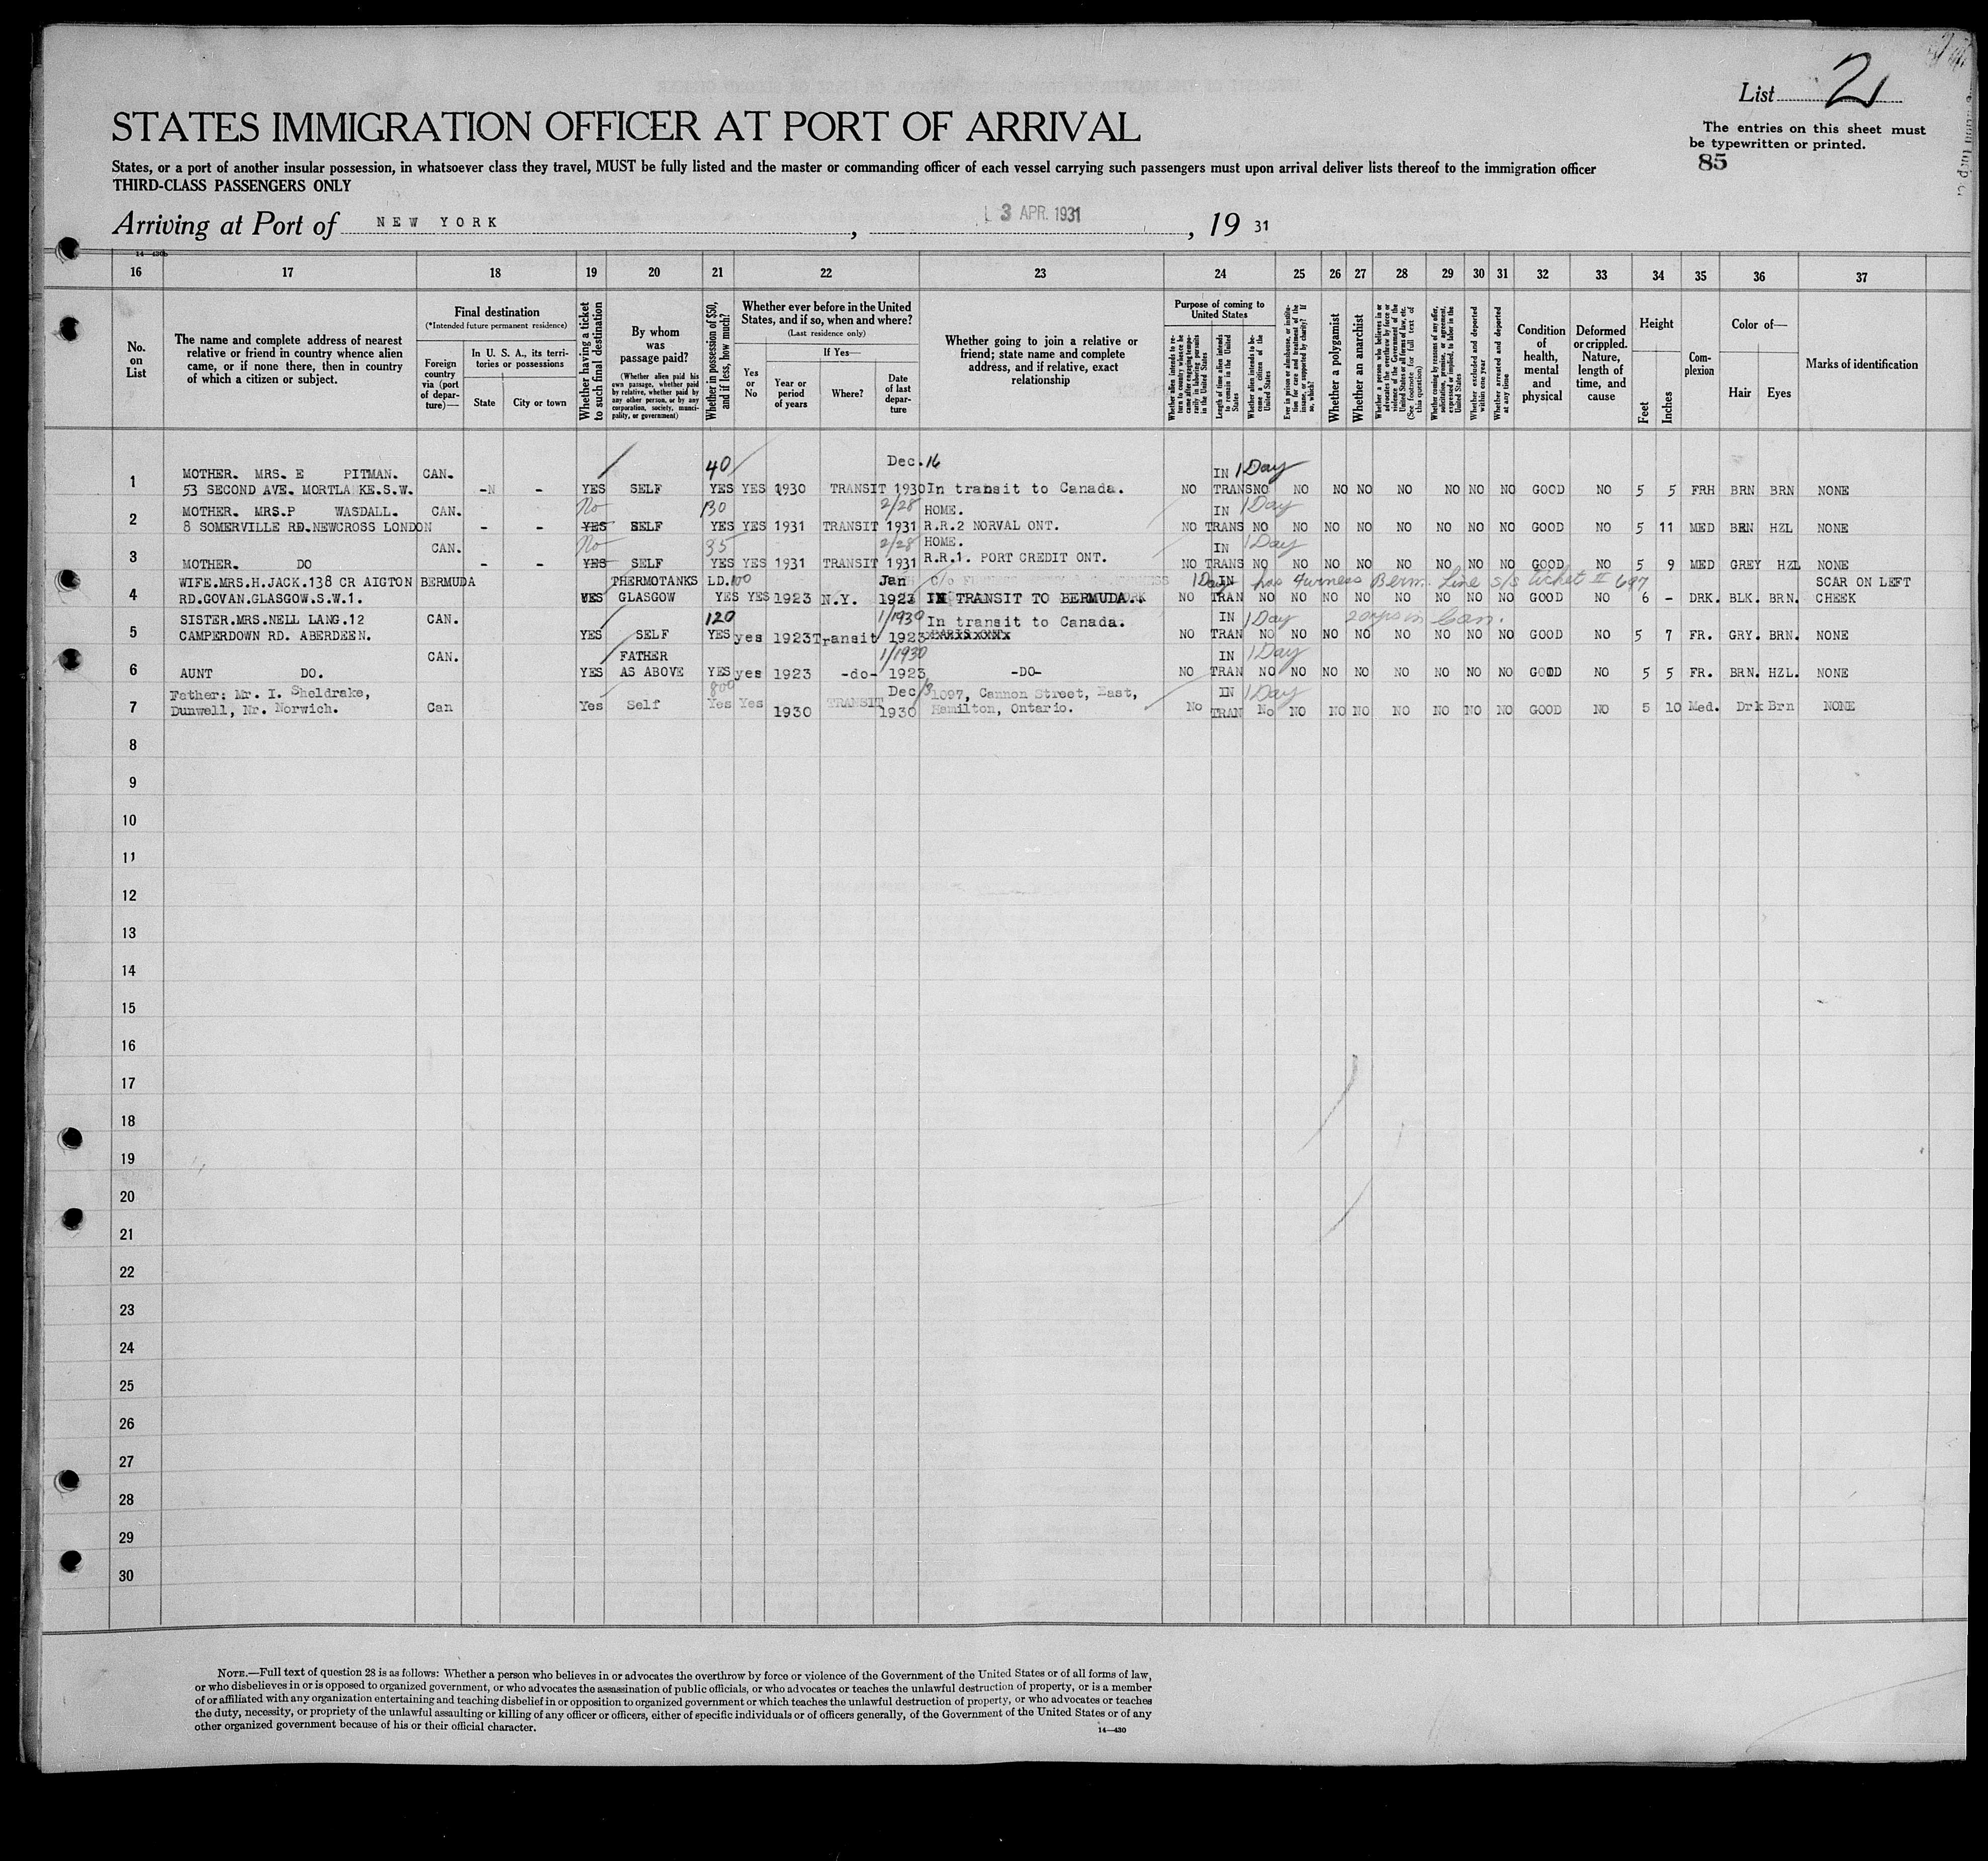 List 2
STATES IMMIGRATION OFFICER AT PORT OF ARRIVAL
The entries on this sheet must
be typewritten or printed.
85
States, or a port of another insular possession, in whatsoever class they travel, MUST be fully listed and the master or commanding officer of each vessel carrying such passengers must upon arrival deliver lists thereof to the immigration officer
THIRD-CLASS PASSENGERS ONLY
Arriving at Port of NEW YORK , 3 APR. 1931 , 19 31
16 17 18 19 20 21 22 23 24 25 26 27 28 29 30 31 32 33 34 35 36 37
No. on List
The name and complete address of nearest relative or friend in country whence alien came, or if none there, then in country of which a citizen or subject.
Final destination
(*Intended future permanent residence)
Foreign country via (port of departure)—
In U. S. A., its territories or possessions
State
City or town
Whether having a ticket to such final destination
By whom was passage paid?
(Whether alien paid his own passage, whether paid by relative, whether paid by any other person, or by any corporation, society, municipality, or government)
Whether in possession of $50, and if less, how much?
Whether ever before in the United States, and if so, when and where?
(Last residence only)
Yes or No
If Yes—
Year or period of years
Where?
Date of last departure
Whether going to join a relative or friend; state name and complete address, and if relative, exact relationship
Purpose of coming to United States
Whether alien intends to return to country whence he came after engaging temporarily in laboring pursuits in the United States
Length of time alien intends to remain in the United States
Whether alien intends to become a citizen of the United States
Ever in prison or almshouse, or institution for care and treatment of the insane, or supported by charity? If so, which?
Whether a polygamist
Whether an anarchist
Whether a person who believes in or advocates the overthrow by force or violence of the Government of the United States or all forms of law, etc. (See footnote for full text of this question)
Whether coming by reasons of any offer, solicitation, promise, or agreement, expressed or implied, to labor in the United States
Whether excluded and deported within one year
Whether arrested and deported at any time
Condition of health, mental and physical
Deformed or crippled. Nature, length of time, and cause
Height
Feet
Inches
Complexion
Color of—
Hair
Eyes
Marks of identification
Dec.16
MOTHER. MRS. E PITMAN. CAN. 40 IN 1 Day
1 53 SECOND AVE. MORTLAKE.S.W. -N - YES SELF YES YES 1930 TRANSIT 1930 In transit to Canada. NO TRANS NO NO NO NO NO NO NO NO GOOD NO 5 5 FRH BRN BRN NONE
MOTHER. MRS.P WASDALL. CAN. No 130 2/28 HOME. IN 1 Day
2 8 SOMERVILLE RD.NEWCROSS LONDON - - YES SELF YES YES 1931 TRANSIT 1931 R.R.2 NORVAL ONT. NO TRANS NO NO NO NO NO NO NO NO GOOD NO 5 11 MED BRN HZL NONE
CAN. No 35 2/28 HOME. IN 1 Day
3 MOTHER. DO - - YES SELF YES YES 1931 TRANSIT 1931 R.R.1. PORT CREDIT ONT. NO TRANS NO NO NO NO NO NO NO NO GOOD NO 5 9 MED GREY HZL NONE
WIFE.MRS.H.JACK.138 CR AIGTON BERMUDA THERMOTANKS LD. 100 Jan 1 Day IN has Furness Berm. Line s/s ticket # 697 SCAR ON LEFT
4 RD.GOVAN.GLASGOW.S.W.1. YES GLASGOW YES YES 1923 N.Y. 1923 IN TRANSIT TO BERMUDA. NO TRAN NO NO NO NO NO NO NO NO GOOD NO 6 - DRK. BLK. BRN. CHEEK
SISTER.MRS.NELL LANG.12 CAN. 120 1/1930 In transit to Canada. IN 1 Day 20 yrs in Can.
5 CAMPERDOWN RD. ABERDEEN. YES SELF YES yes 1923 Transit 1923 NO TRAN NO NO NO NO NO NO NO NO GOOD NO 5 7 FR. GRY. BRN. NONE
CAN. FATHER 1/1930 IN 1 Day
6 AUNT DO. YES AS ABOVE YES yes 1923 -do- 1923 -DO- NO TRAN NO NO NO NO NO NO NO NO GOOD NO 5 5 FR. BRN. HZL. NONE
Father: Mr. I. Sheldrake, 800 Dec/3 1097, Cannon Street, East, IN 1 Day
7 Dunwell, Nr. Norwich. Can Yes Self Yes Yes 1930 TRANSIT 1930 Hamilton, Ontario. No TRAN No NO NO NO NO NO NO NO GOOD NO 5 10 Med. Drk Brn NONE
8
9
10
11
12
13
14
15
16
17
18
19
20
21
22
23
24
25
26
27
28
29
30
NOTE.—Full text of question 28 is as follows: Whether a person who believes in or advocates the overthrow by force or violence of the Government of the United States or of all forms of law,
or who disbelieves in or is opposed to organized government, or who advocates the assassination of public officials, or who advocates or teaches the unlawful destruction of property, or is a member
of or affiliated with any organization entertaining and teaching disbelief in or opposition to organized government or which teaches the unlawful destruction of property, or who advocates or teaches
the duty, necessity, or propriety of the unlawful assaulting or killing of any officer or officers, either of specific individuals or of officers generally, of the Government of the United States or of any
other organized government because of his or their official character.
14—430